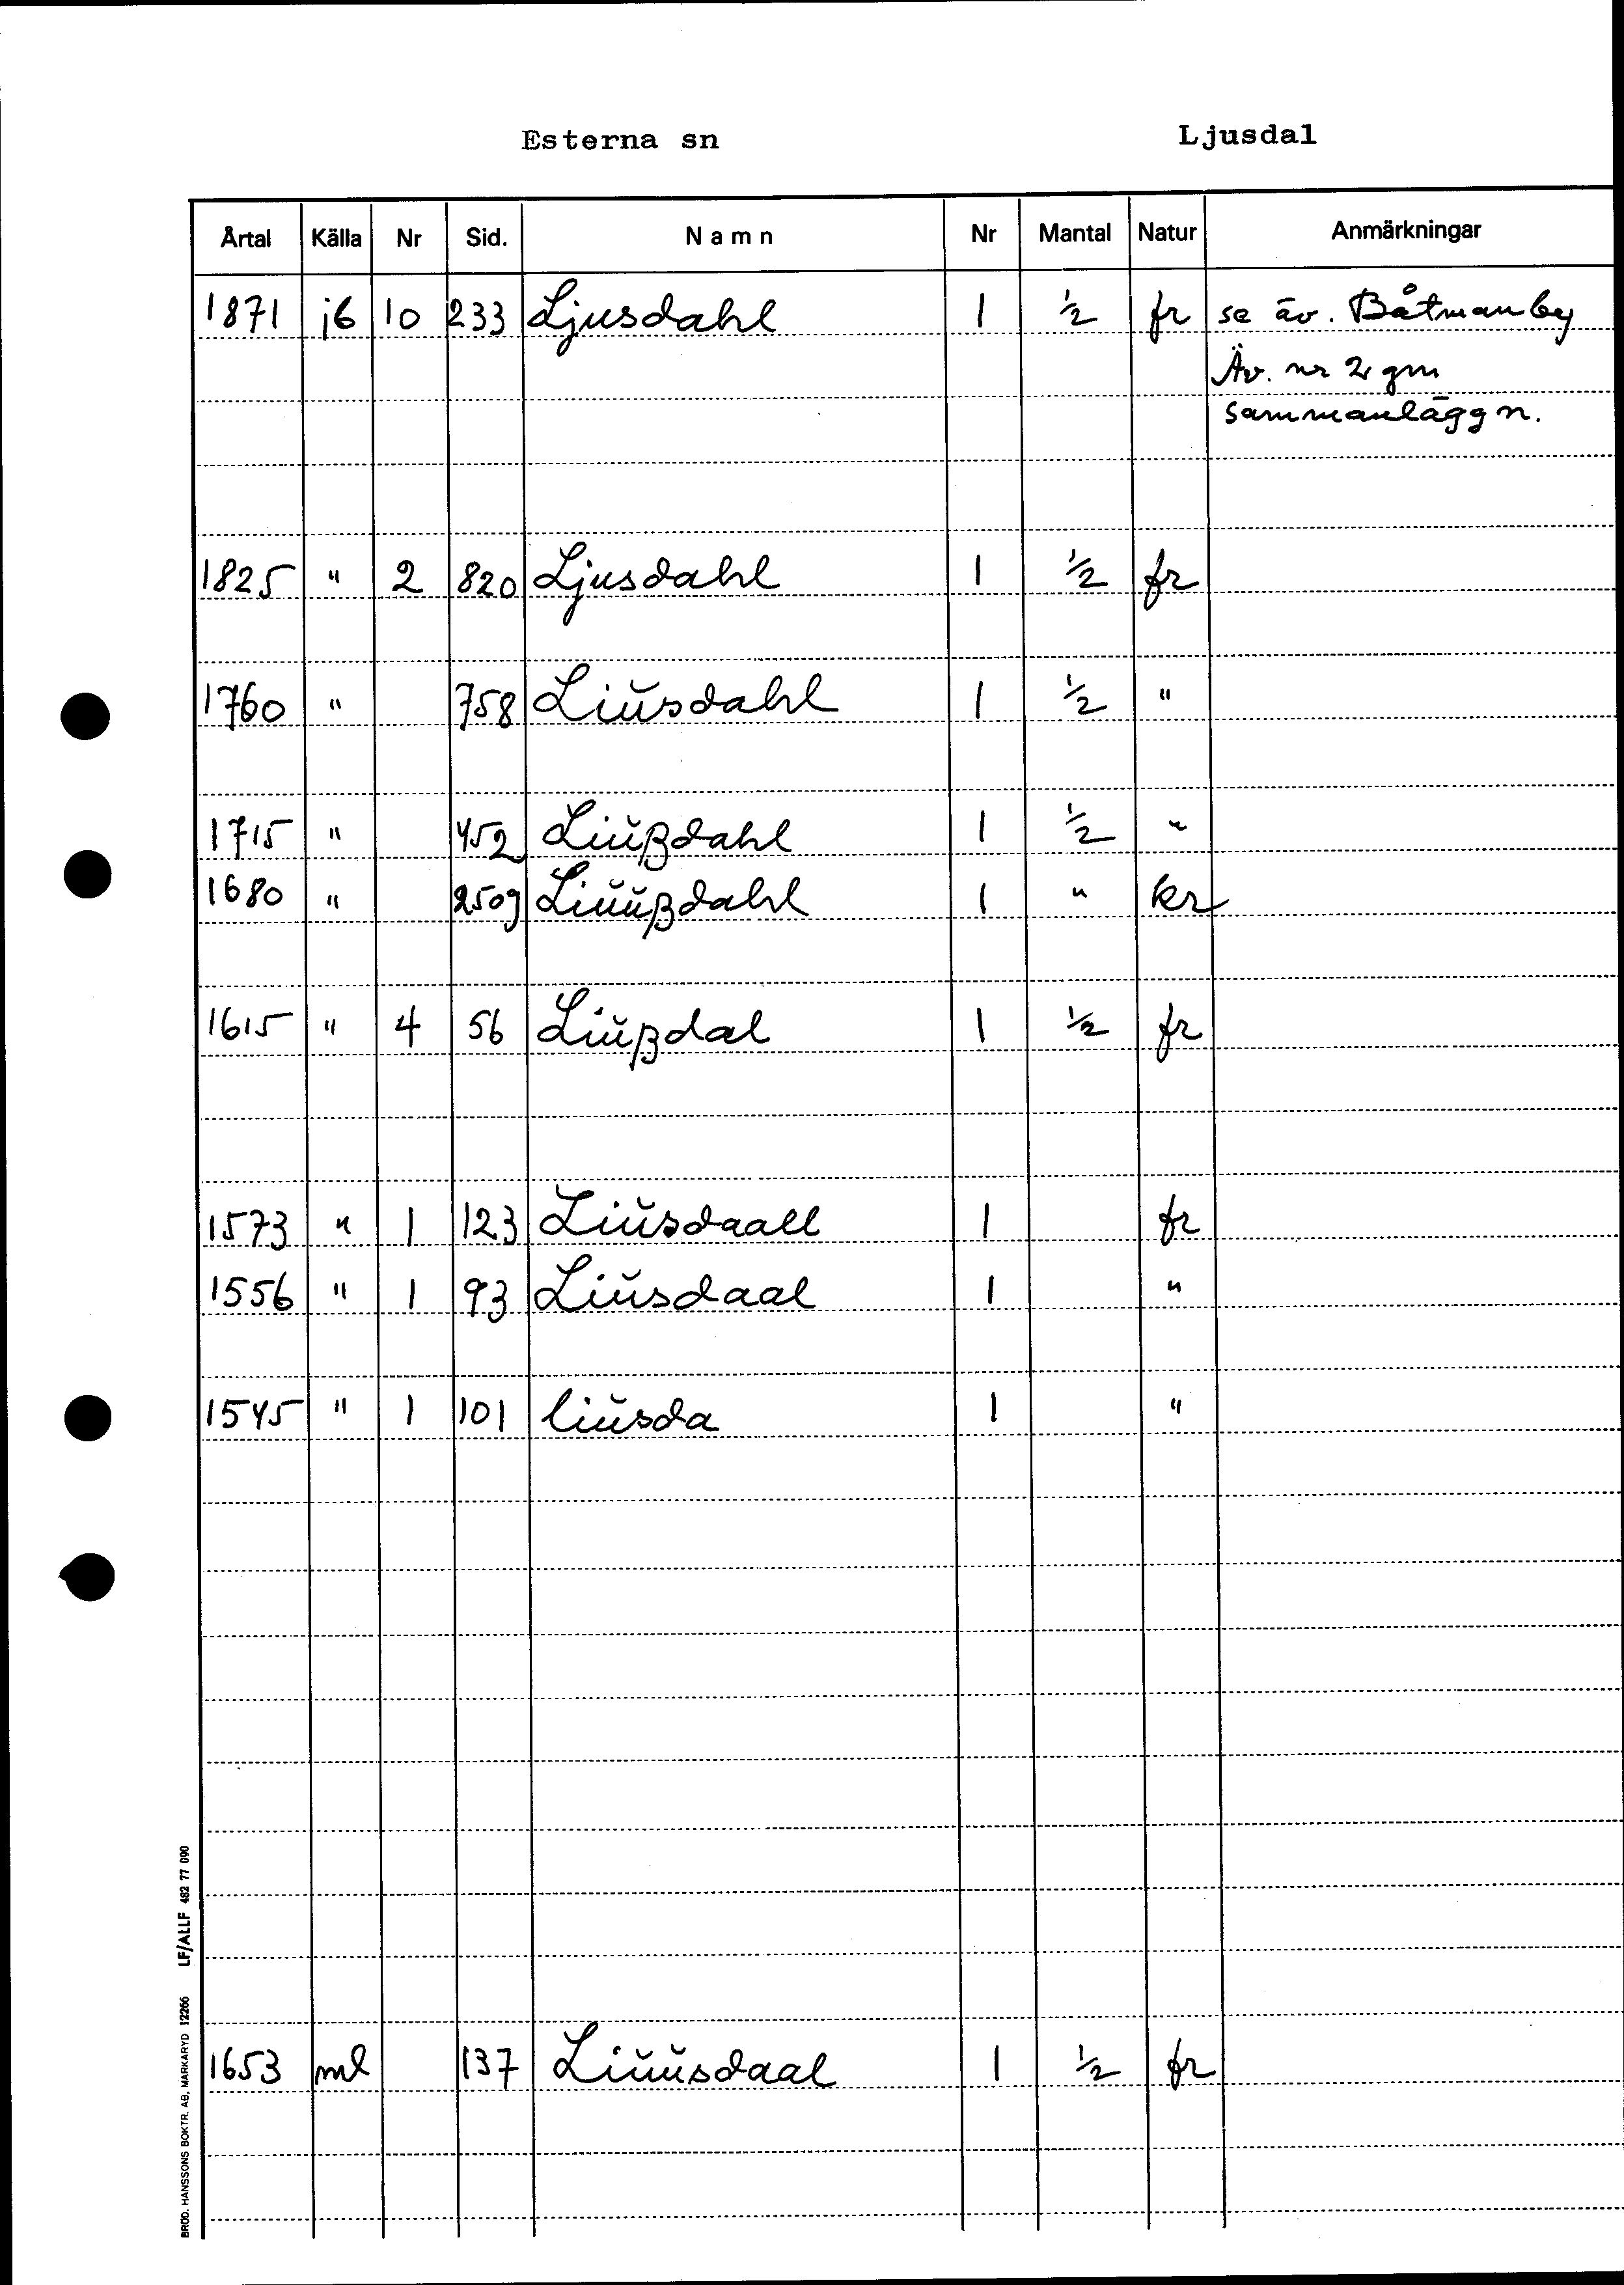 Esterna sn Ljusdal
Årtal Källa Nr Sid. Namn Nr Mantal Natur Anmärkningar
1871 jb 10 233 Ljusdahl 1 1/2 fr se äv. Båtmanby
Äv. nr 2 gm
sammanläggn.
1825 " 2 820 Ljusdahl 1 1/2 fr
1760 " 758 Liŭsdahl 1 1/2 "
1715 " 452 Liŭßdahl 1 1/2 "
1680 " 2509 Liŭŭßdahl 1 " kr
1615 " 4 56 Liŭßdal 1 1/2 fr
1573 " 1 123 Liŭsdaall 1 fr
1556 " 1 93 Liŭsdaal 1 "
1545 " 1 101 liŭsda 1 "
1653 ml 137 Liŭŭsdaal 1 1/2 fr
BRÖD. HANSSONS BOKTR. AB, MARKARYD 12266 LF/ALLF 482 77 090